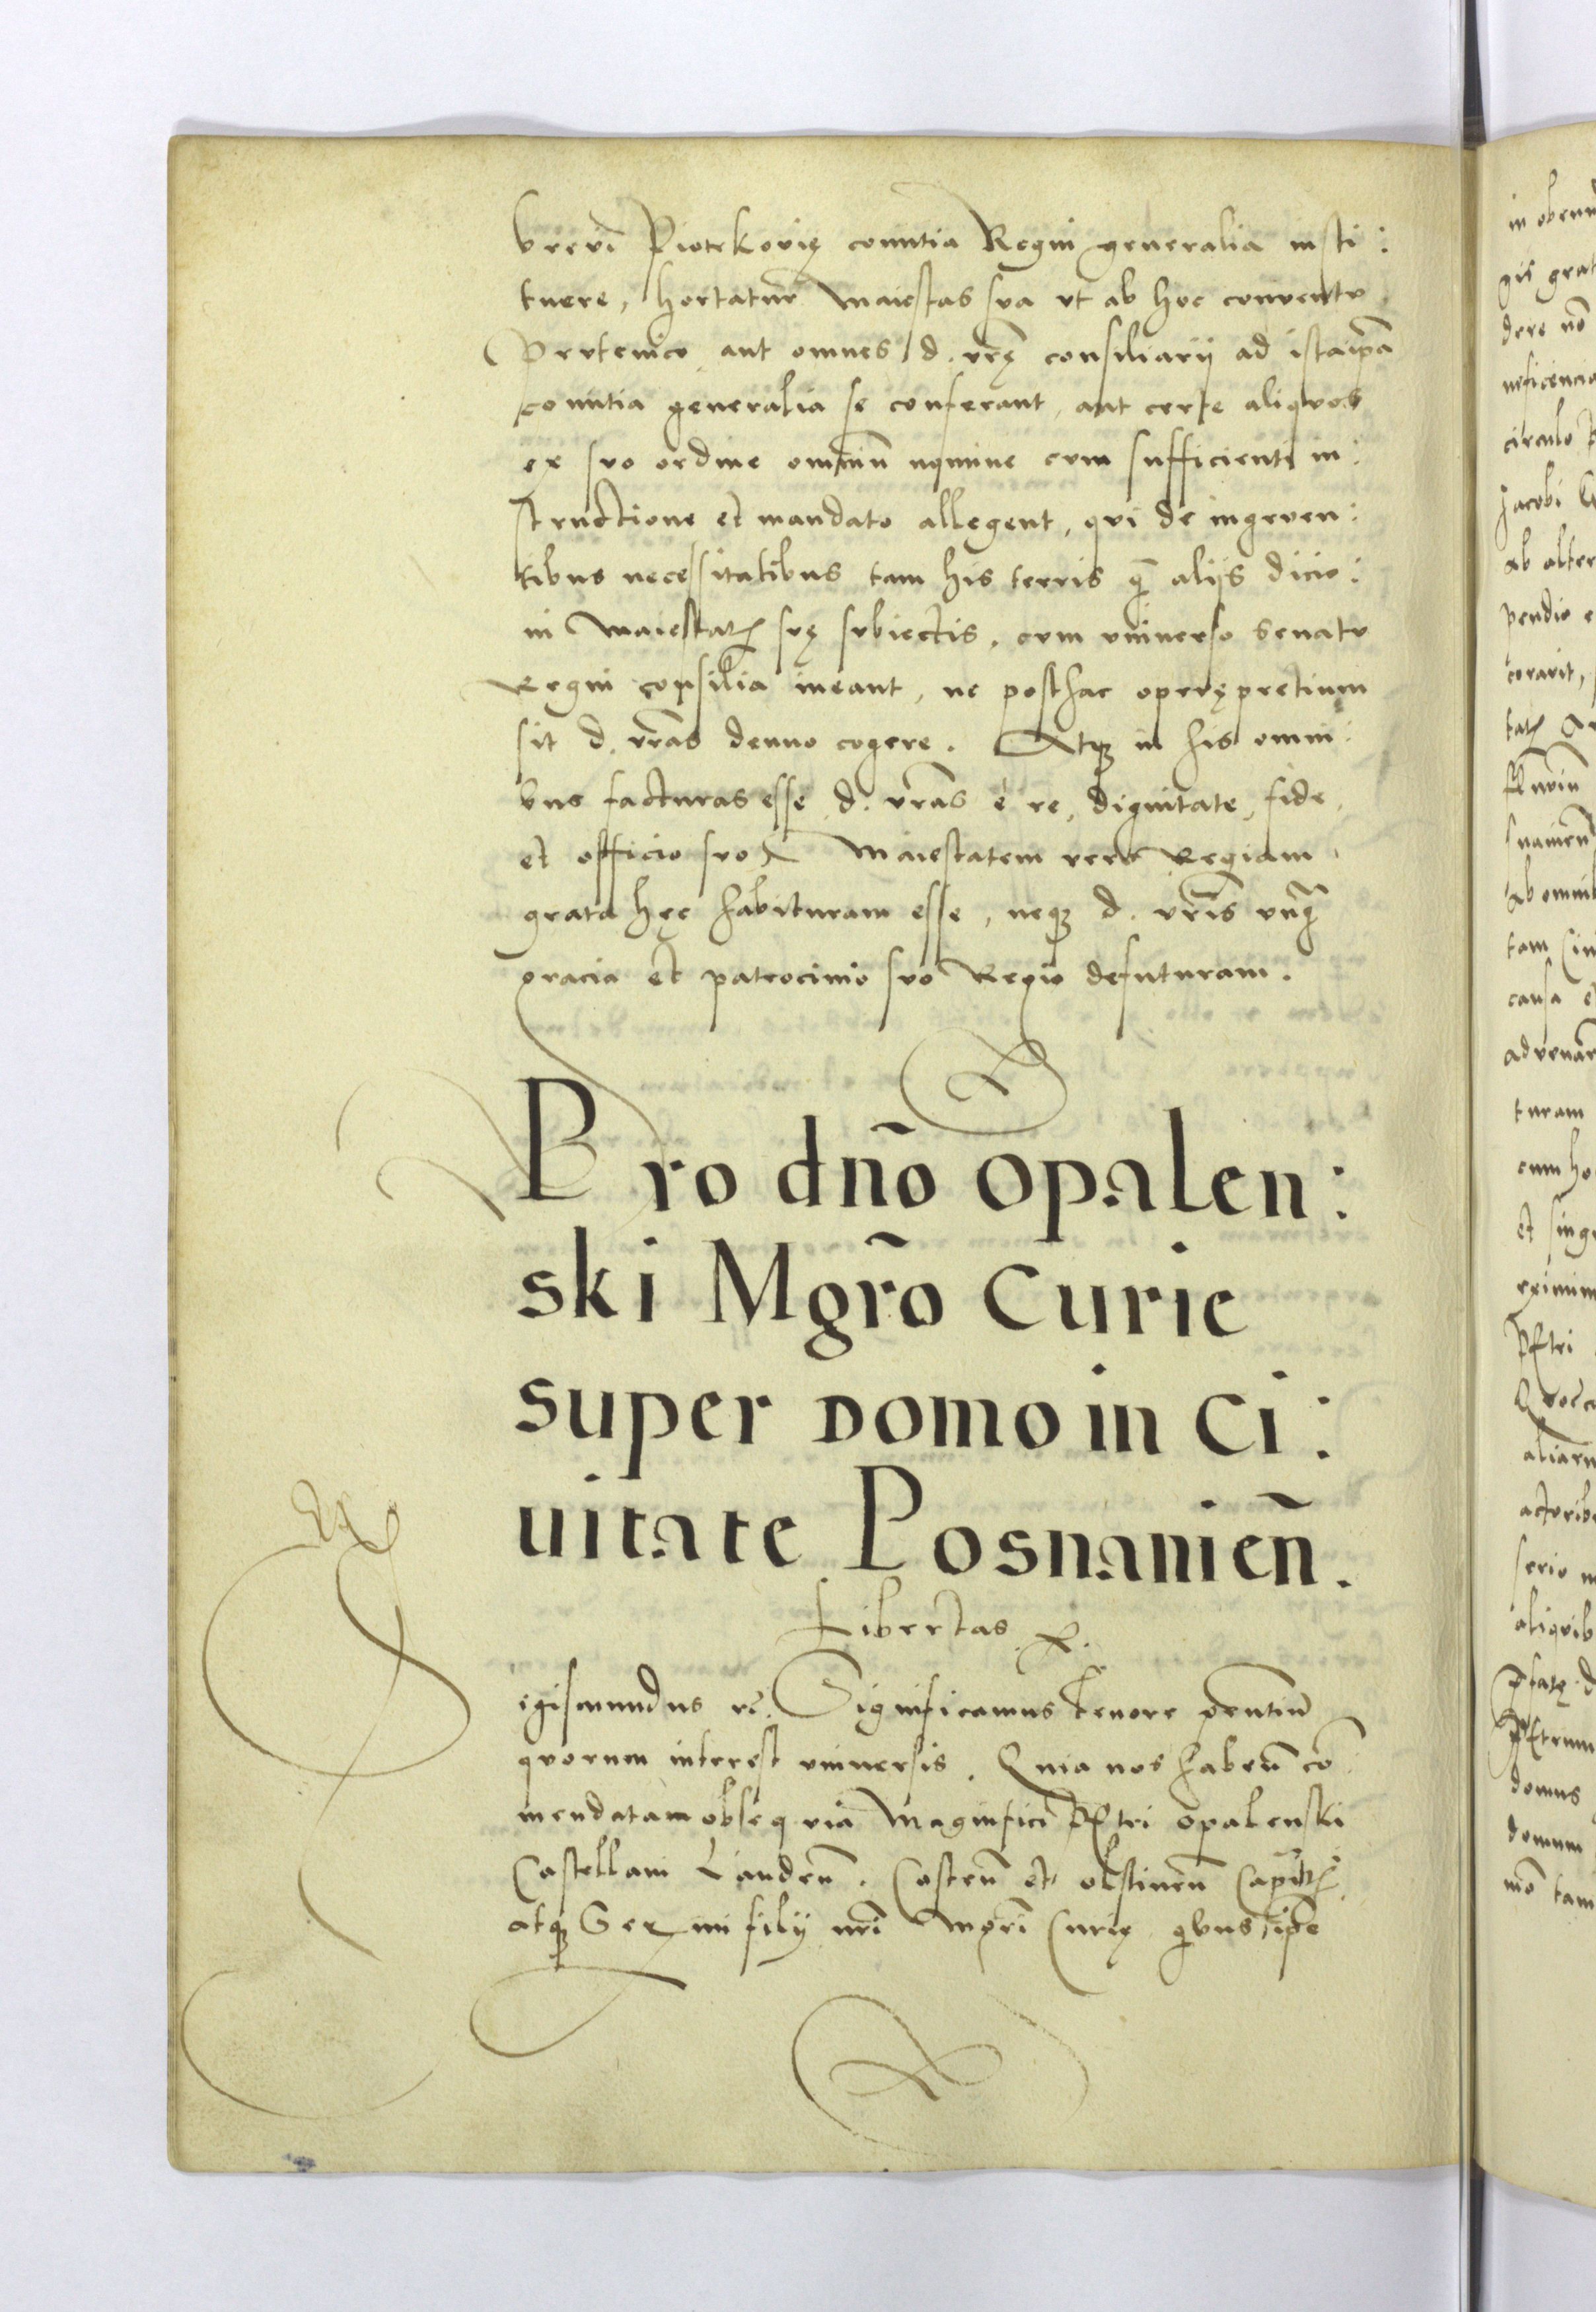 brevi Piotrkovię comitia Regni generalia insti:
tuere, hortatur Maiestas sua ut ab hoc conventu
Prutenico, aut omnes d. vrę consiliarij ad ista ipa
comitia generalia se conferant, aut certe aliquos
ex suo ordine omniu nomine cum sufficienti in:
structione et mandato allegent, qui de ingruen:
tibus necessitatibus tam his terris q aliis dicio:
ni Maiestat suę subiectis, cum universo senatu
Regni consilia ineant, ne posthac operę pretium
sit d. vras denuo cogere. Atq in his omni:
bus facturas esse d. vras è re, dignitate, fide,
et officio suo. Maiestatem vero Regiam
grata hęc habituram esse, neq d. vris unq
gracia et patrocinio suo Regio defuturam.
Pro dño opalen:
ski Mgrõ Curie
super domo in Ci:
uitate Posnanieñ.
Libertas
Sigismundus rc. Significamus tenore pntiu
quorum interest universis. Quia nos haben co
mendatam obsequia Magnifici Petri opalenski
Castellani Landen. Costen et olstinen Capit
atq Ser mi filij nri Mgri Curię qbus ipe
in oben
gis grat
dere no
neficencia
circulo
Jacobi
ab alter
pendio e
coravit,
fluviu
ab omnib
tam Civ
causa et
advenar
turam
cum ho
et sing
eximiu
Petri
aliaru
actorib
serio
aliquib
pfatę d
Petrum
domus
domum
mo tam